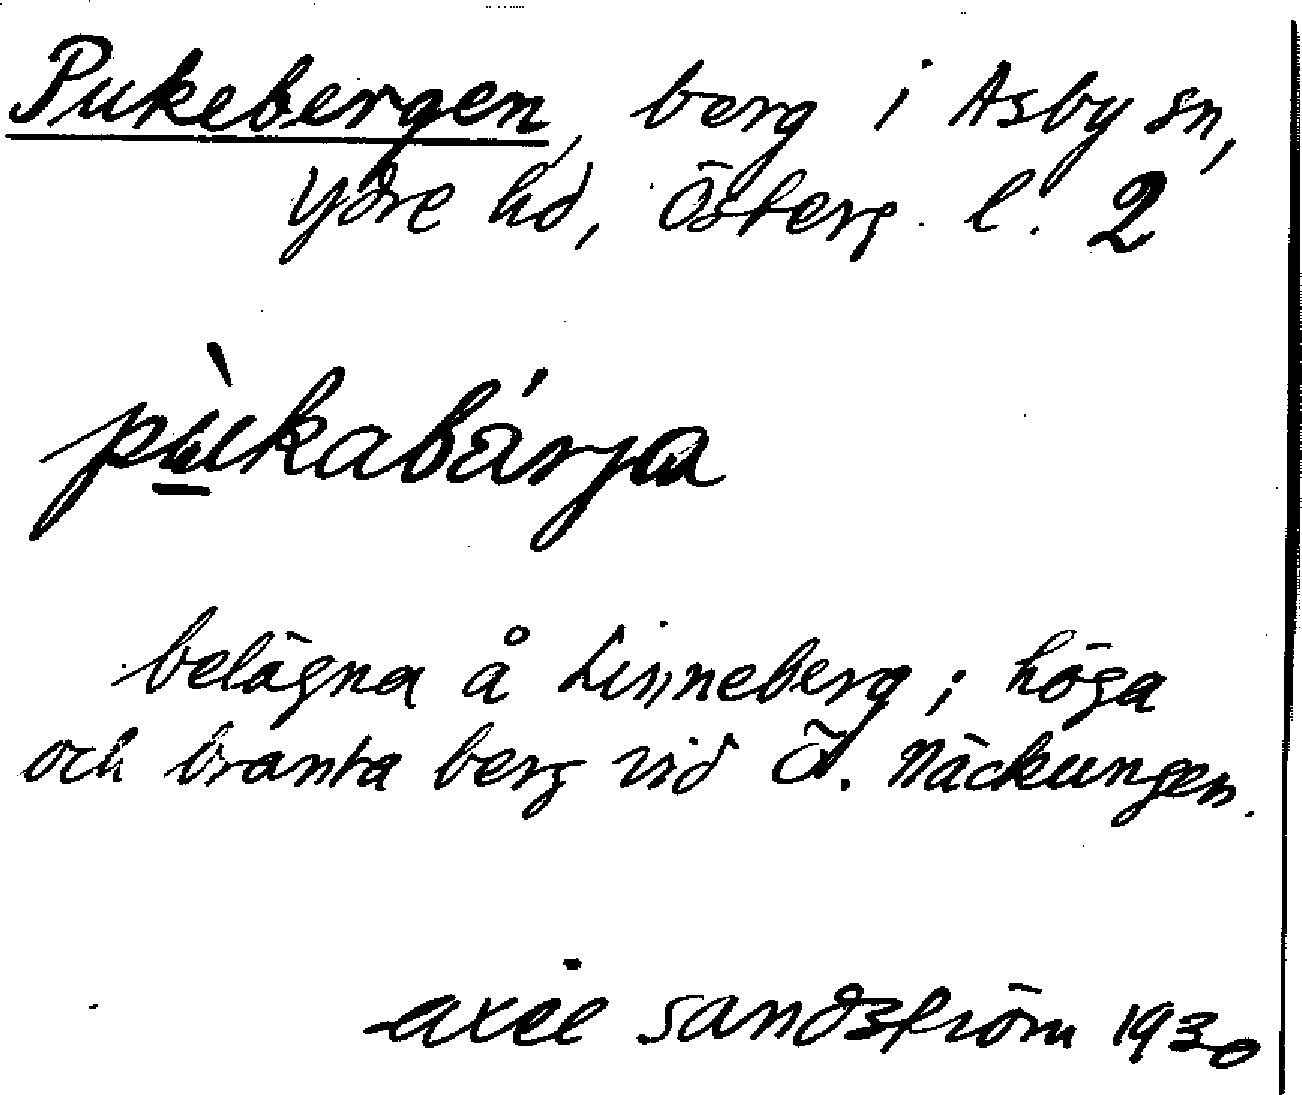 Pukebergen, berg i Asby sn,
Ydre hd, Österg. l. 2
pùkabárja
belägna å Linneberg; höga
och branta berg vid Ö. Näckungen.
Axel Sandström 1930